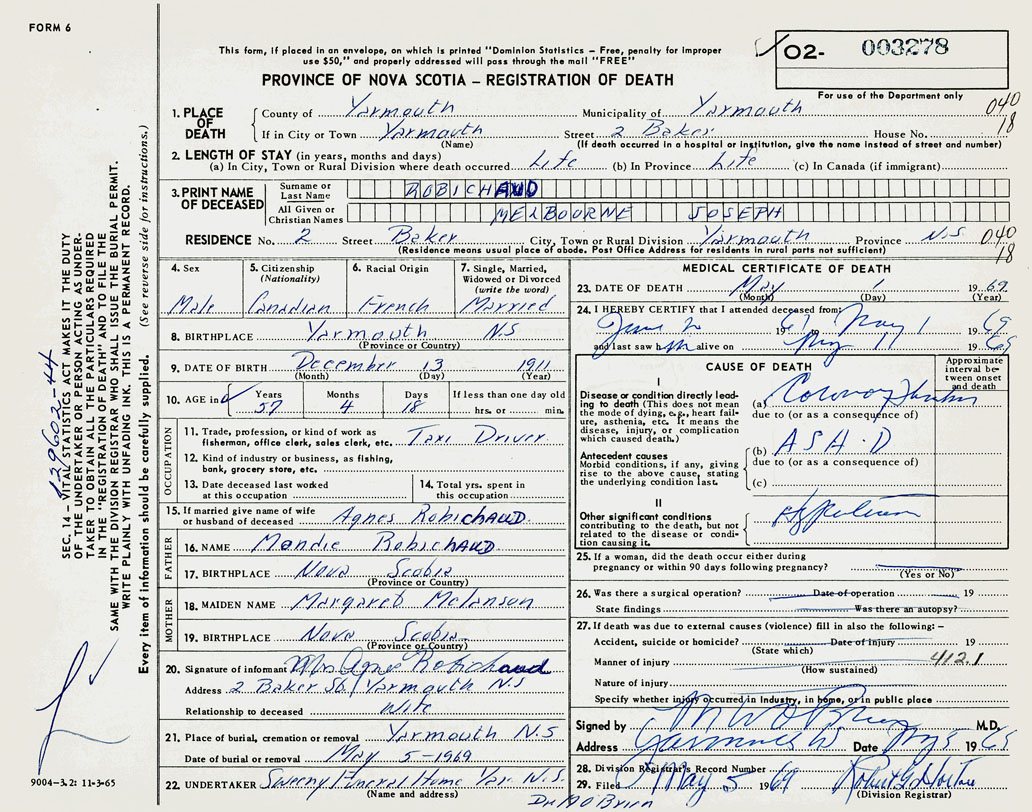 FORM 6
This form, if placed in an envelope, on which is printed "Dominion Statistics – Free, penalty for improper
use $50," and properly addressed will pass through the mail "FREE"
PROVINCE OF NOVA SCOTIA – REGISTRATION OF DEATH
O2- 003278
For use of the Department only
040
18
1. PLACE OF DEATH
County of Yarmouth Municipality of Yarmouth
If in City or Town Yarmouth Street 2 Baker House No.
(Name) (If death occurred in a hospital or institution, give the name instead of street and number)
2. LENGTH OF STAY (in years, months and days)
(a) In City, Town or Rural Division where death occurred Life (b) In Province Life (c) In Canada (if immigrant)
3. PRINT NAME OF DECEASED
Surname or Last Name ROBICHAUD
All Given or Christian Names MELBOURNE JOSEPH
RESIDENCE No. 2 Street Baker City, Town or Rural Division Yarmouth Province N.S
(Residence means usual place of abode. Post Office Address for residents in rural parts not sufficient)
040
18
4. Sex
Male
5. Citizenship
(Nationality)
Canadian
6. Racial Origin
French
7. Single, Married,
Widowed or Divorced
(write the word)
Married
8. BIRTHPLACE Yarmouth N.S
(Province or Country)
9. DATE OF BIRTH December 13 1911
(Month) (Day) (Year)
10. AGE in Years Months Days If less than one day old
57 4 18 hrs. or min.
OCCUPATION
11. Trade, profession, or kind of work as
fisherman, office clerk, sales clerk, etc. Taxi Driver
12. Kind of industry or business, as fishing,
bank, grocery store, etc.
13. Date deceased last worked
at this occupation
14. Total yrs. spent in
this occupation
15. If married give name of wife
or husband of deceased Agnes Robichaud
FATHER
16. NAME Mandie Robichaud
17. BIRTHPLACE Nova Scotia
(Province or Country)
MOTHER
18. MAIDEN NAME Margaret Melanson
19. BIRTHPLACE Nova Scotia
(Province or Country)
20. Signature of informant Mrs. Agnes Robichaud
Address 2 Baker St. Yarmouth N.S
Relationship to deceased Wife
21. Place of burial, cremation or removal Yarmouth N.S
Date of burial or removal May 5-1969
22. UNDERTAKER Sweeny Funeral Home Yar. N.S.
(Name and address)
Dr. O'Brien
MEDICAL CERTIFICATE OF DEATH
23. DATE OF DEATH May 1 1969
(Month) (Day) (Year)
24. I HEREBY CERTIFY that I attended deceased from
June 1967 to May 1 1969
and last saw him alive on May 1969
CAUSE OF DEATH
Approximate
interval be-
tween onset
and death
I
Disease or condition directly lead-
ing to death (This does not mean
the mode of dying, e.g., heart fail-
ure, asthenia, etc. It means the
disease, injury, or complication
which caused death.)
(a)
due to (or as a consequence of)
Antecedent causes
Morbid conditions, if any, giving
rise to the above cause, stating
the underlying condition last.
(b) A S H . D
due to (or as a consequence of)
(c)
II
Other significant conditions
contributing to the death, but not
related to the disease or condi-
tion causing it.
25. If a woman, did the death occur either during
pregnancy or within 90 days following pregnancy?
(Yes or No)
26. Was there a surgical operation? Date of operation 19
State findings Was there an autopsy?
27. If death was due to external causes (violence) fill in also the following: –
Accident, suicide or homicide? Date of injury 19
(State which)
Manner of injury 412.1
(How sustained)
Nature of injury
Specify whether injury occurred in industry, in home, or in public place
Signed by M.D.
Address Yarmouth Date May 5 1969
28. Division Registrar's Record Number
29. Filed May 5 1969
(Division Registrar)
12960Z-44
SEC. 14 – VITAL STATISTICS ACT MAKES IT THE DUTY
OF THE UNDERTAKER OR PERSON ACTING AS UNDER-
TAKER TO OBTAIN ALL THE PARTICULARS REQUIRED
IN THE "REGISTRATION OF DEATH" AND TO FILE THE
SAME WITH THE DIVISION REGISTRAR WHO SHALL ISSUE THE BURIAL PERMIT.
WRITE PLAINLY WITH UNFADING INK. THIS IS A PERMANENT RECORD.
Every item of information should be carefully supplied. (See reverse side for instructions.)
9004–3.2: 11-3-65